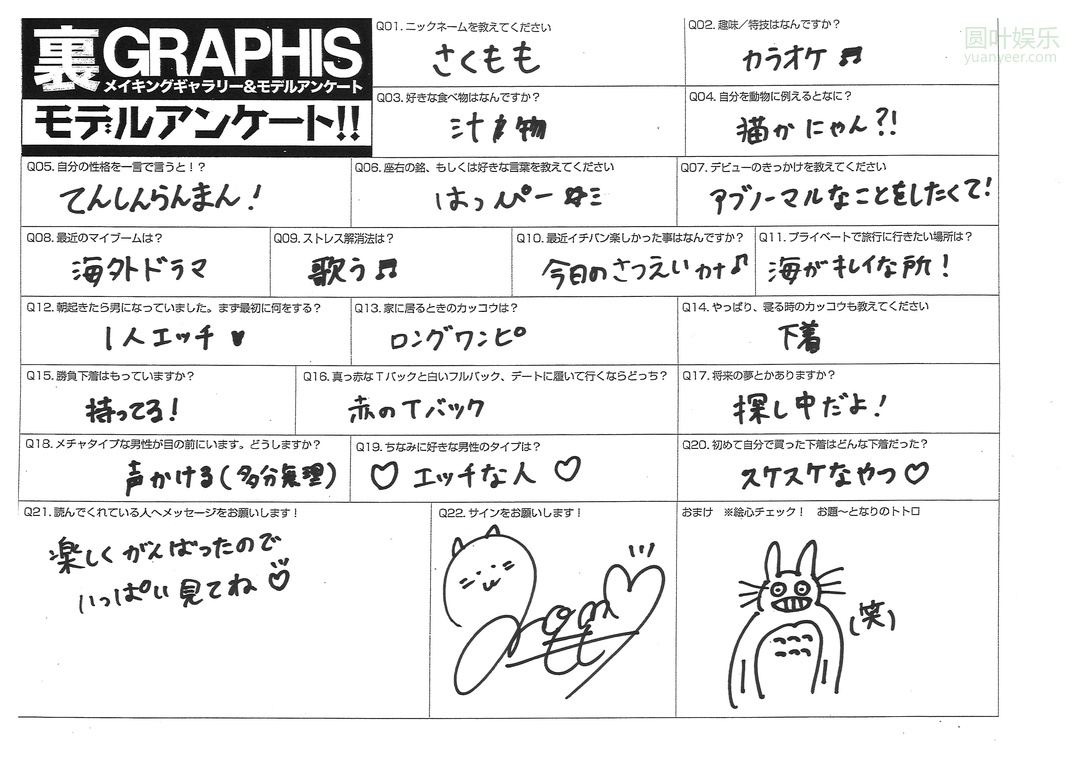 裏GRAPHIS
メイキングギャラリー&モデルアンケート
モデルアンケート!!
Q01. ニックネームを教えてください
さくもも
Q02. 趣味／特技はなんですか？
カラオケ♬
圆叶娱乐
yuanyeer.com
Q03. 好きな食べ物はなんですか？
汁物
Q04. 自分を動物に例えるとなに？
猫かにゃん?!
Q05. 自分の性格を一言で言うと！？
てんしんらんまん！
Q06. 座右の銘、もしくは好きな言葉を教えてください
はっぴー☆ミ
Q07. デビューのきっかけを教えてください
アブノーマルなことをしたくて！
Q08. 最近のマイブームは？
海外ドラマ
Q09. ストレス解消法は？
歌う♬
Q10. 最近イチバン楽しかった事はなんですか？
今日のさつえいカナ♪
Q11. プライベートで旅行に行きたい場所は？
海がキレイな所！
Q12. 朝起きたら男になっていました。まず最初に何をする？
1人エッチ♥
Q13. 家に居るときのカッコウは？
ロングワンピ
Q14. やっぱり、寝る時のカッコウも教えてください
下着
Q15. 勝負下着はもっていますか？
持ってる！
Q16. 真っ赤なＴバックと白いフルバック、デートに履いて行くならどっち？
赤のTバック
Q17. 将来の夢とかありますか？
探し中だよ！
Q18. メチャタイプな男性が目の前にいます。どうしますか？
声かける(多分無理)
Q19. ちなみに好きな男性のタイプは？
♡エッチな人♡
Q20. 初めて自分で買った下着はどんな下着だった？
スケスケなやつ♡
Q21. 読んでくれている人へメッセージをお願いします！
楽しくがんばったので
いっぱい見てね♡
Q22. サインをお願いします！
おまけ　※絵心チェック！　お題〜となりのトトロ
(笑)